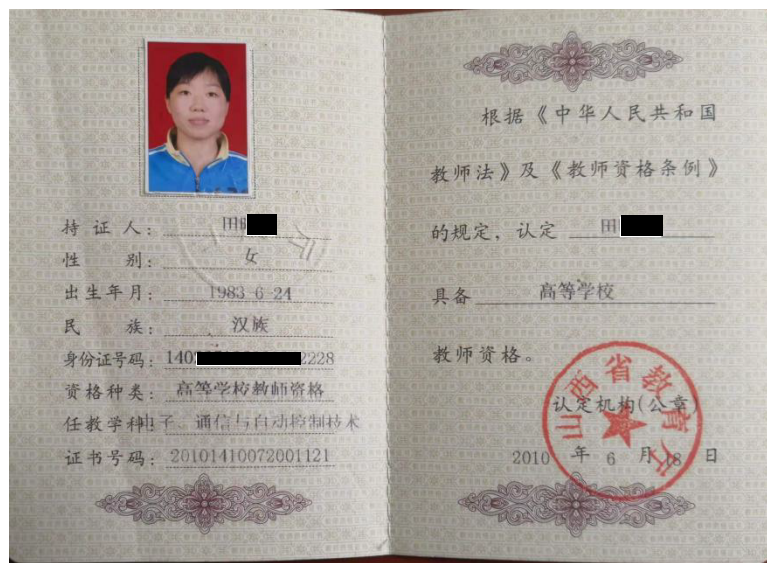 持 证 人：田
性 别：女
出生年月：1983-6-24
民 族：汉族
身份证号码：140 2228
资格种类：高等学校教师资格
任教学科：电子、通信与自动控制技术
证书号码：20101410072001121
根据《中华人民共和国
教师法》及《教师资格条例》
的规定，认定 田
具备 高等学校
教师资格。
山西省教育厅
认定机构(公章)
2010 年 6 月 18 日